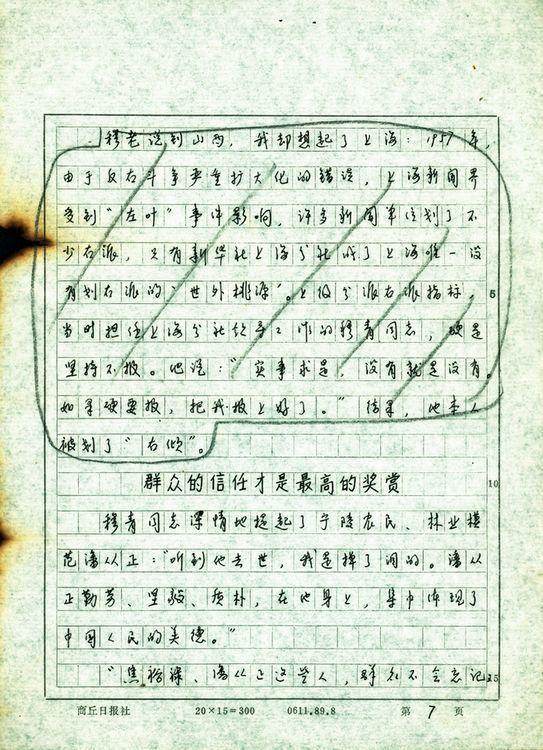 穆老谈到山西，我却想起了上海：1957年，
由于反右斗争严重扩大化的错误，上海新闻界
受到“左叶”事件影响，许多新闻单位划了不
少右派，只有新华社上海分社成了上海唯一没
有划右派的“世外桃源”。上级分派右派指标，
5
当时担任上海分社领导工作的穆青同志，硬是
坚持不报。他说：“实事求是，没有就是没有。
如果硬要报，把我报上好了。”结果，他本人
被划了“右倾”。
群众的信任才是最高的奖赏
10
穆青同志深情地提起了宁陵农民、林业模
范潘从正：“听到他去世，我是掉了泪的。潘从
正勤劳、坚毅、质朴，在他身上，集中体现了
中国人民的美德。”
“焦裕禄、潘从正这些人，群众不会忘记
15
商丘日报社 20×15=300 0611.89.8 第 7 页